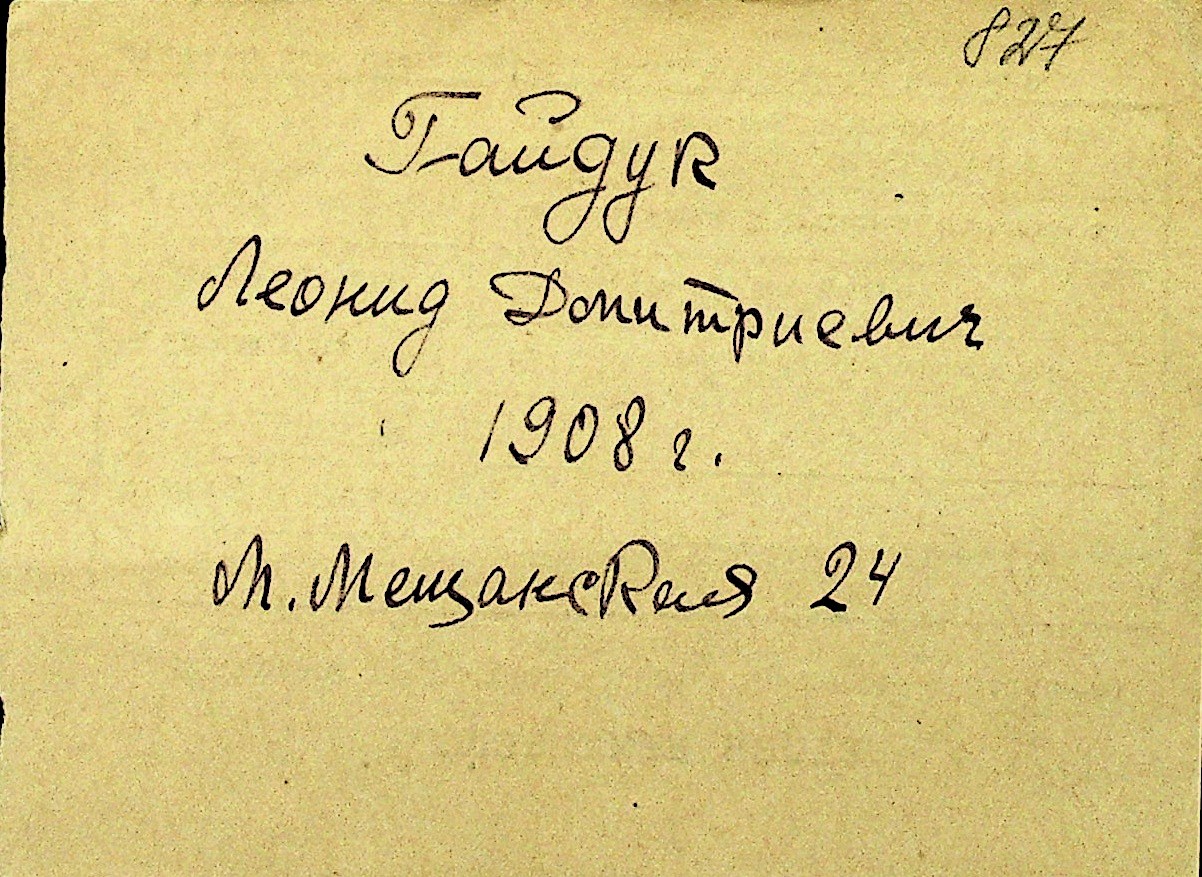 827
Гайдук
Леонид Дмитриевич
1908 г.
М. Мещанская 24